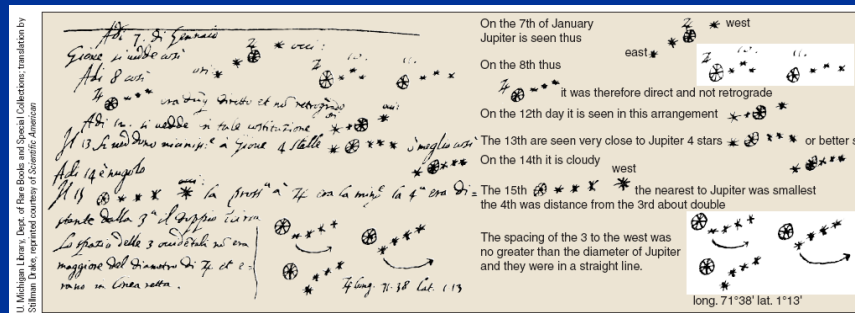 U. Michigan Library, Dept. of Rare Books and Special Collections; translation by
Stillman Drake, reprinted courtesy of Scientific American
Adi 7. di Gennaio
Giove si vedde così
Adi 8 così
era dunq diretto et no retrogrado
Adi 12. si vedde in tale costituzione
Il 13 si veddono à Giove 4 stelle
ò meglio così
Adi 14 è nugolo
Il 15
la era di=
stante dalla 3ª il doppio
Lo spazio delle 3 no era
maggiore del diametro di 4 et e=
rano in linea retta.
long. 71·38 lat. 1·13
On the 7th of January
Jupiter is seen thus
west
east
On the 8th thus
it was therefore direct and not retrograde
On the 12th day it is seen in this arrangement
The 13th are seen very close to Jupiter 4 stars
or better s
On the 14th it is cloudy
west
The 15th
the nearest to Jupiter was smallest
the 4th was distance from the 3rd about double
The spacing of the 3 to the west was
no greater than the diameter of Jupiter
and they were in a straight line.
long. 71°38' lat. 1°13'